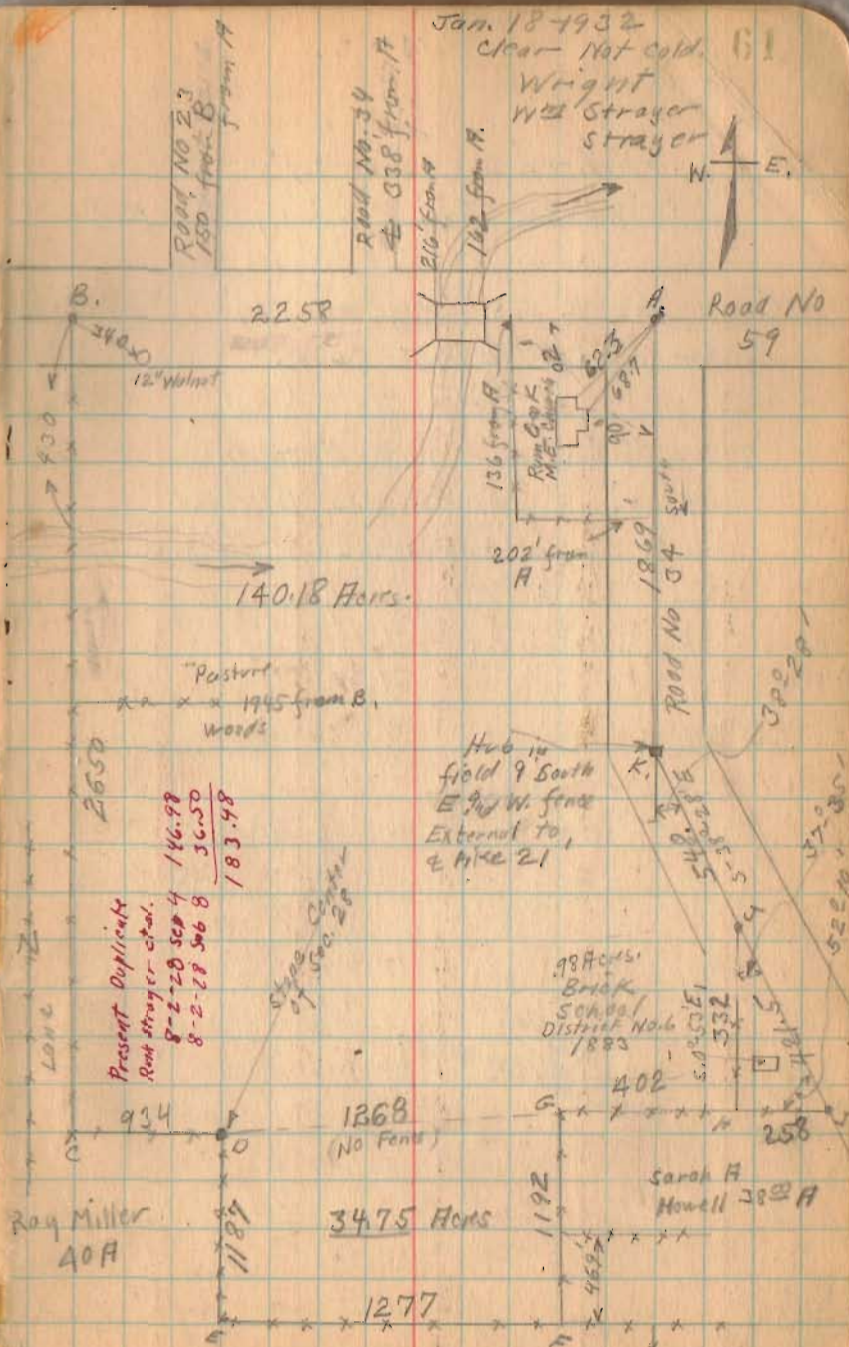 Jan. 18-1932
61
Clear Not Cold.
Wright
Wm Strayer
Strayer
W. E.
Road No 23
150 from B
from A
Road No. 34
338' from A
216' from A
162 from A.
B.
2258
A.
Road No
59
340
12" Walnut
430
136 from A
M.E. Church
62.3
68.7
90
202' from
A
1869
South
Road No 34
140.18 Acres.
Pasture
1945 from B.
woods
2650
Hub in
field 9' South
E and W. fence
External to
Pike 21
K.
38°-28'
37°-35'
Present Duplicate
Rosa Strayer et al.
8-2-28 Sep 4 146.98
8-2-28 Sub 8 36.50
183.48
Stone Center
of Sec. 28
Lane
.98 Acrs.
Brick
School
District No. 6
1883
S.0°53'E
332
402
G
258
C
934
D
1268
(No Fence)
Ray Miller
40 A
1187
34.75 Acres
1192
Sarah A
Howell 38 00 A
469'
E
1277